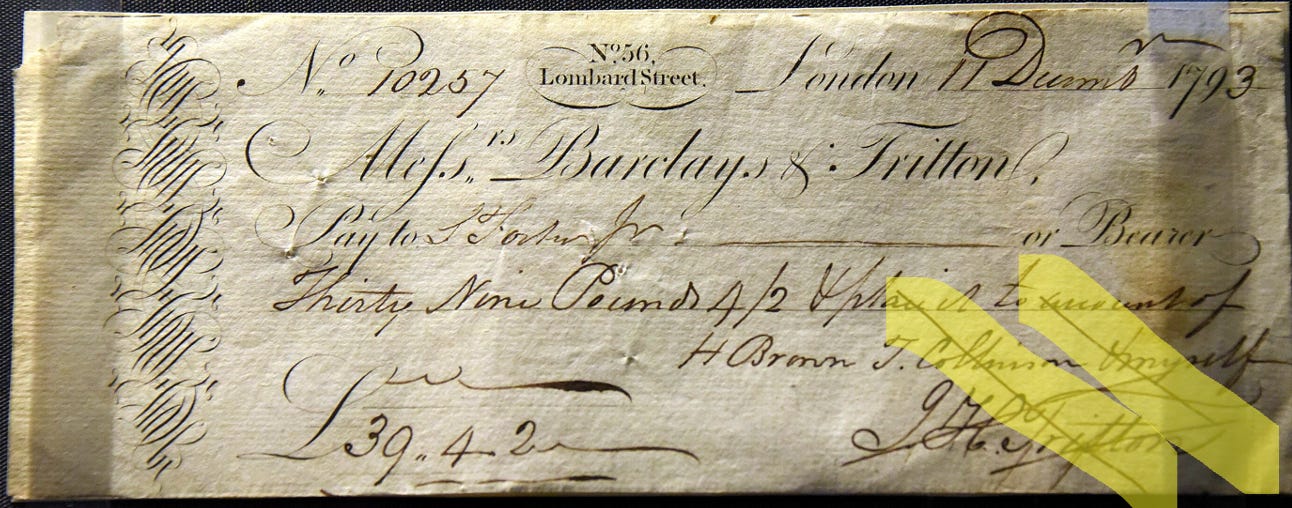 No. 10257
No. 56,
Lombard Street.
London 11 Decemb r 1793
Mess.rs Barclays & Tritton,
Pay to Jr or Bearer
Thirty Nine Pounds 4/2 & place it to account of
H Brown T. Collinson & myself
£39.. 4. 2
J H. Tritton